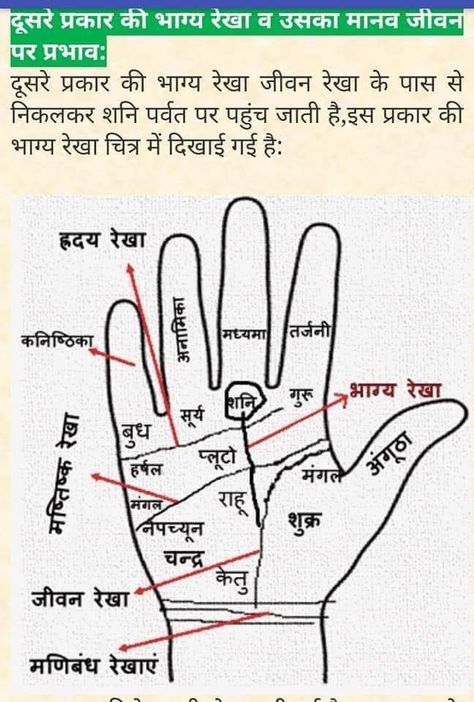 दूसरे प्रकार की भाग्य रेखा व उसका मानव जीवन
पर प्रभाव:
दूसरे प्रकार की भाग्य रेखा जीवन रेखा के पास से
निकलकर शनि पर्वत पर पहुंच जाती है,इस प्रकार की
भाग्य रेखा चित्र में दिखाई गई है:
ह्रदय रेखा
अनामिका
मध्यमा
तर्जनी
कनिष्ठिका
शनि
गुरू
भाग्य रेखा
सूर्य
बुध
प्लूटो
हर्षल
मंगल
अंगूठा
मष्तिष्क रेखा
मंगल
राहू
शुक्र
नेपच्यून
चन्द्र
केतु
जीवन रेखा
मणिबंध रेखाएं